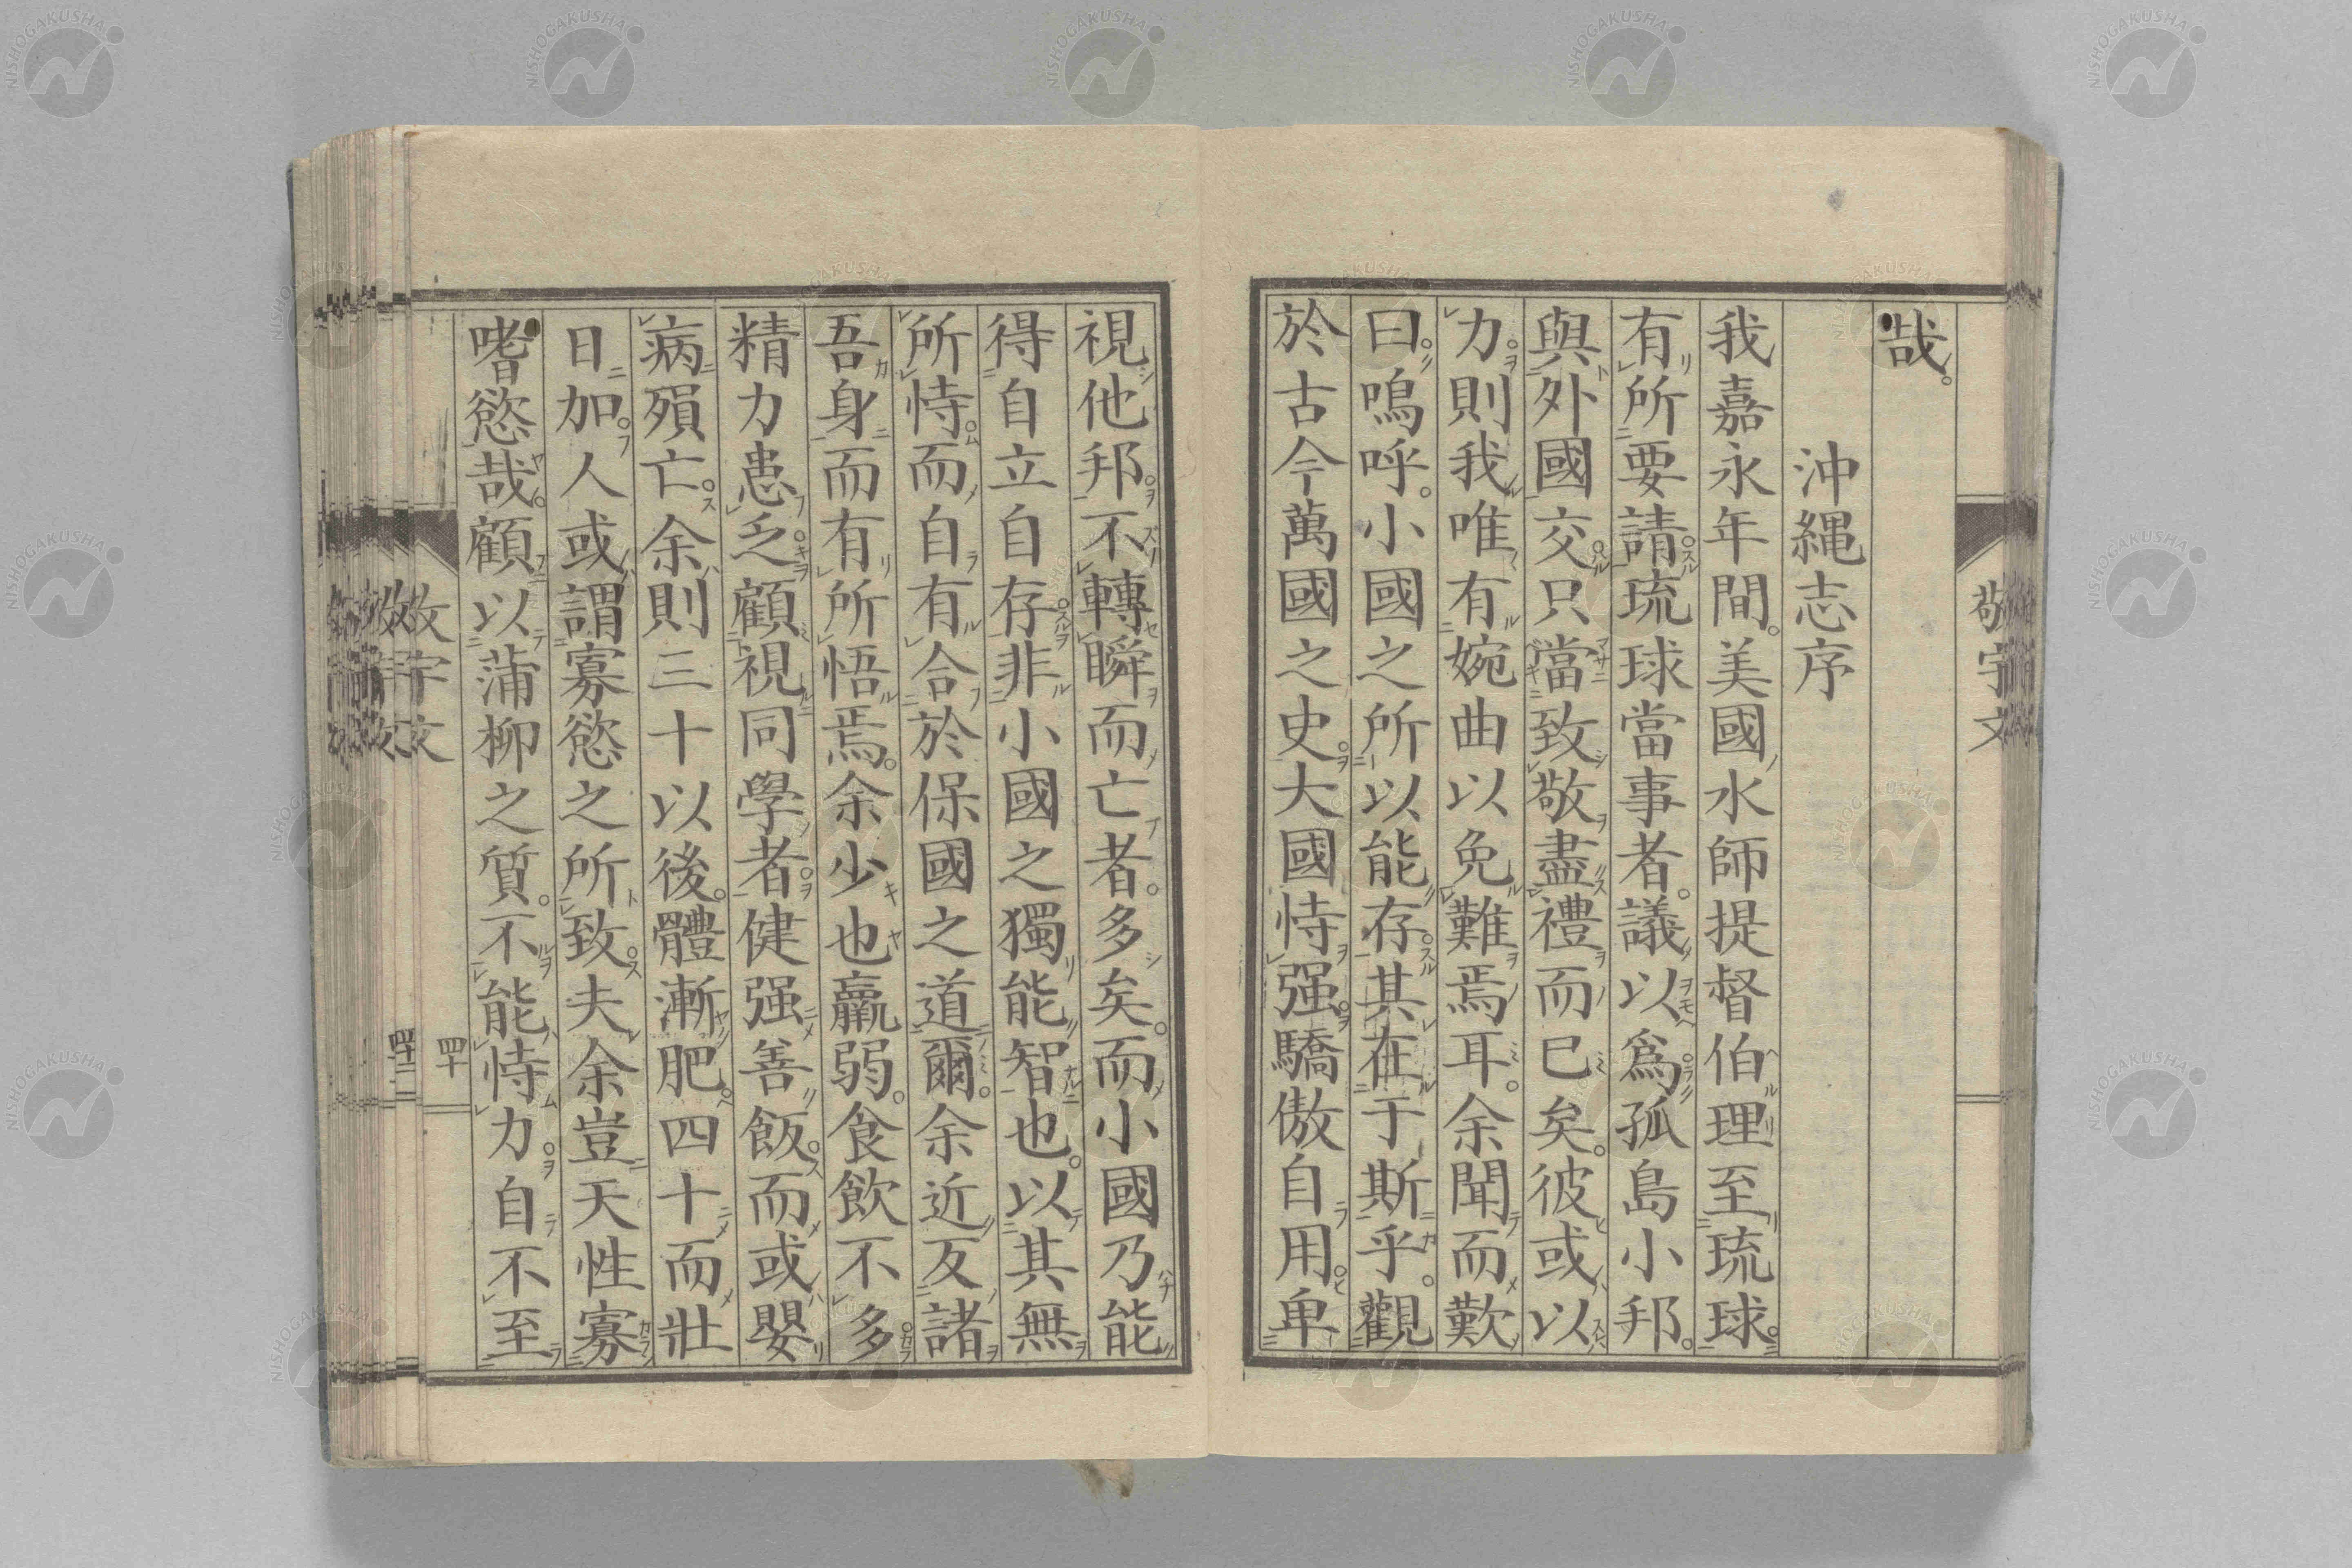 哉。
沖繩志序
我嘉永年間。美國水師提督伯理至琉球。
有所要請。琉球當事者。議以爲孤島小邦。
與外國交。只當致敬盡禮而已矣。彼或以
力。則我唯有婉曲以免難焉耳。余聞而歎
曰。嗚呼。小國之所以能存。其在于斯乎。觀
於古今萬國之史。大國恃强。驕傲自用。卑
視他邦。不轉瞬而亡者。多矣。而小國乃能
得自立自存。非小國之獨能智也。以其無
所恃。而自有合於保國之道爾。余近反諸
吾身而有所悟焉。余少也羸弱。食飲不多。
精力患乏。顧視同學者。健强善飯。而或嬰
病殞亡。余則三十以後。體漸肥。四十而壯
日加。人或謂寡慾之所致。夫余豈天性寡
嗜慾哉。顧以蒲柳之質。不能恃力。自不至
敬宇文
四十
NISHOGAKUSHA